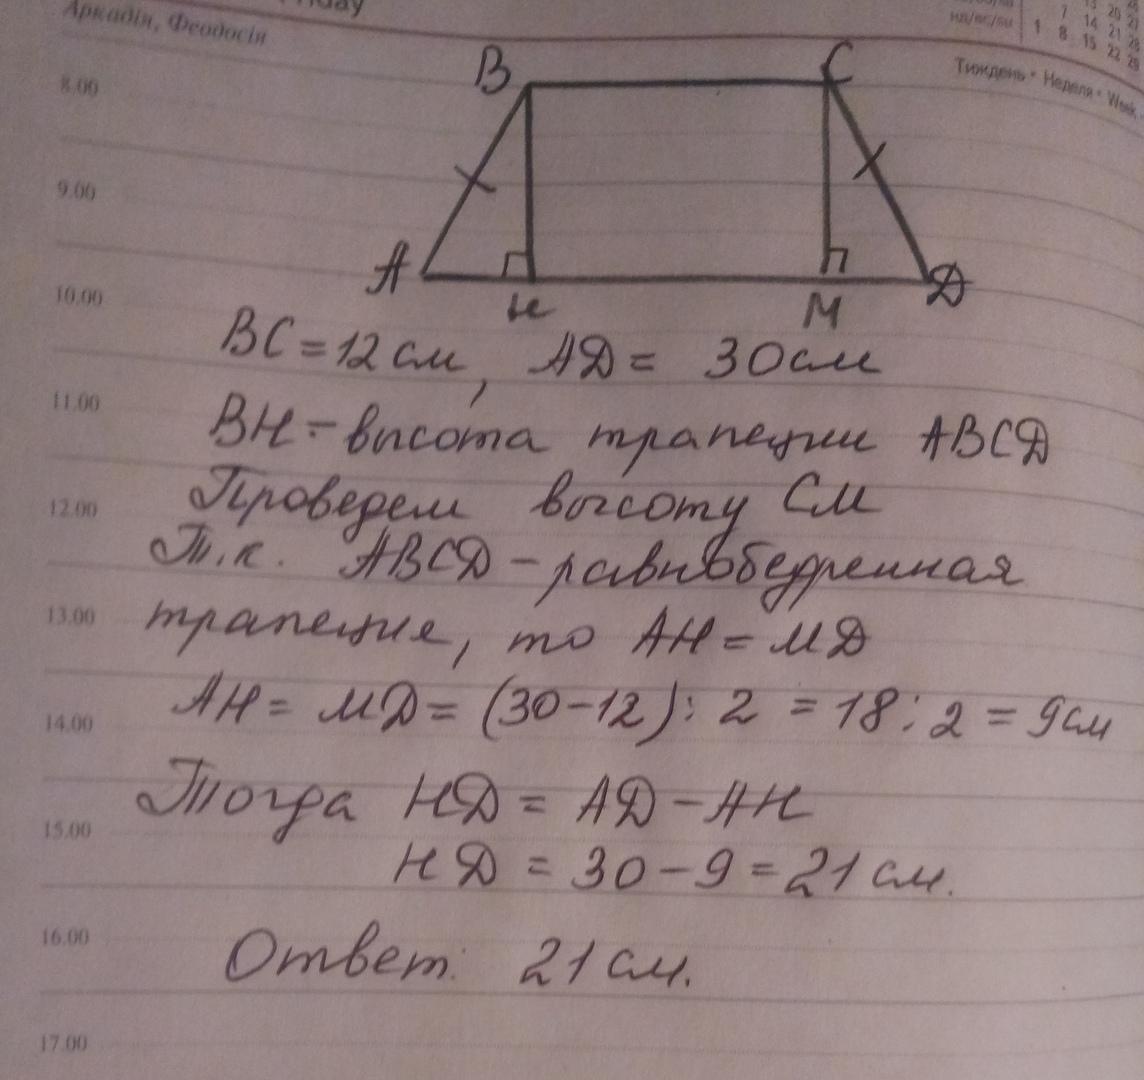 Аркадія, Феодосія
нд/вс/su
1 8 15 22 29
7 14 21 28
13 20 27
Тиждень • Неделя • Week
8.00
9.00
10.00
11.00
12.00
13.00
14.00
15.00
16.00
17.00
B C
A H M D
BC = 12 см, AD = 30 см
BH - высота трапеции ABCD
Проведем высоту CM
Т.к. ABCD - равнобедренная
трапеция, то AH = MD
AH = MD = (30-12) : 2 = 18 : 2 = 9 см
Тогда HD = AD - AH
HD = 30 - 9 = 21 см.
Ответ: 21 см.